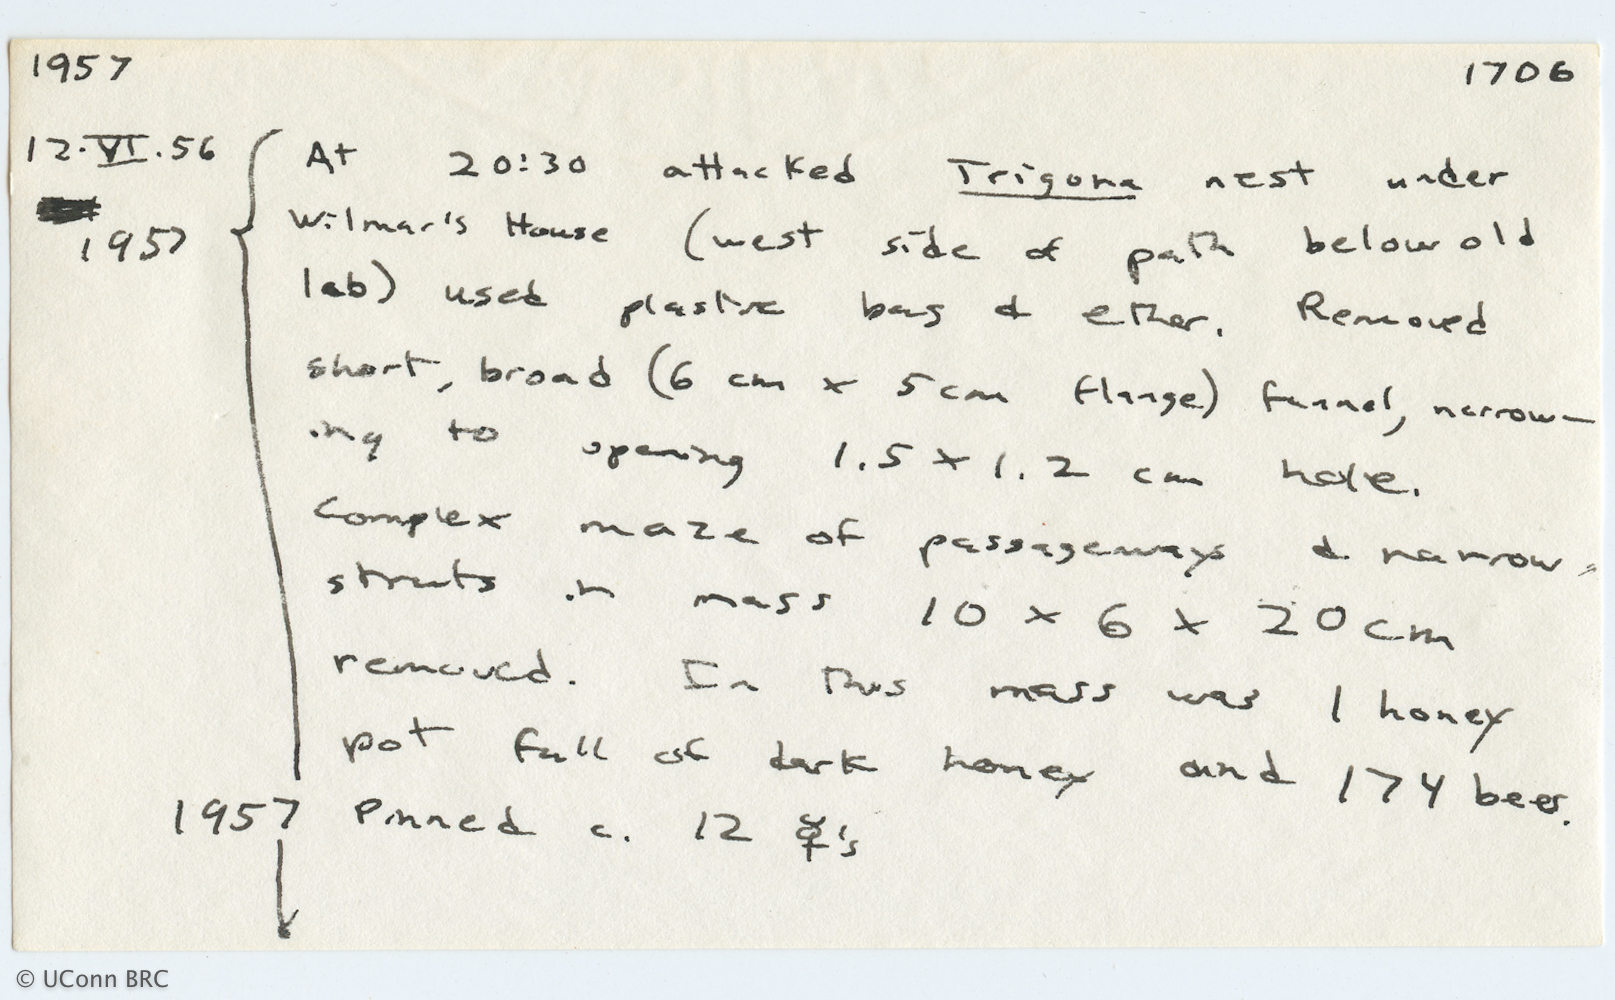 1957 1706
12.VI.56 At 20:30 attacked Trigona nest under
1957 Wilmar's House (west side of path below old
lab) used plastic bag & ether. Removed
short, broad (6 cm x 5cm flange) funnel, narrow-
ing to opening 1.5 x 1.2 cm hole.
Complex maze of passageways & narrow
struts in mass 10 x 6 x 20 cm
removed. In this mass was 1 honey
pot full of dark honey and 174 bees.
1957 Pinned c. 12 ☿'s
© UConn BRC